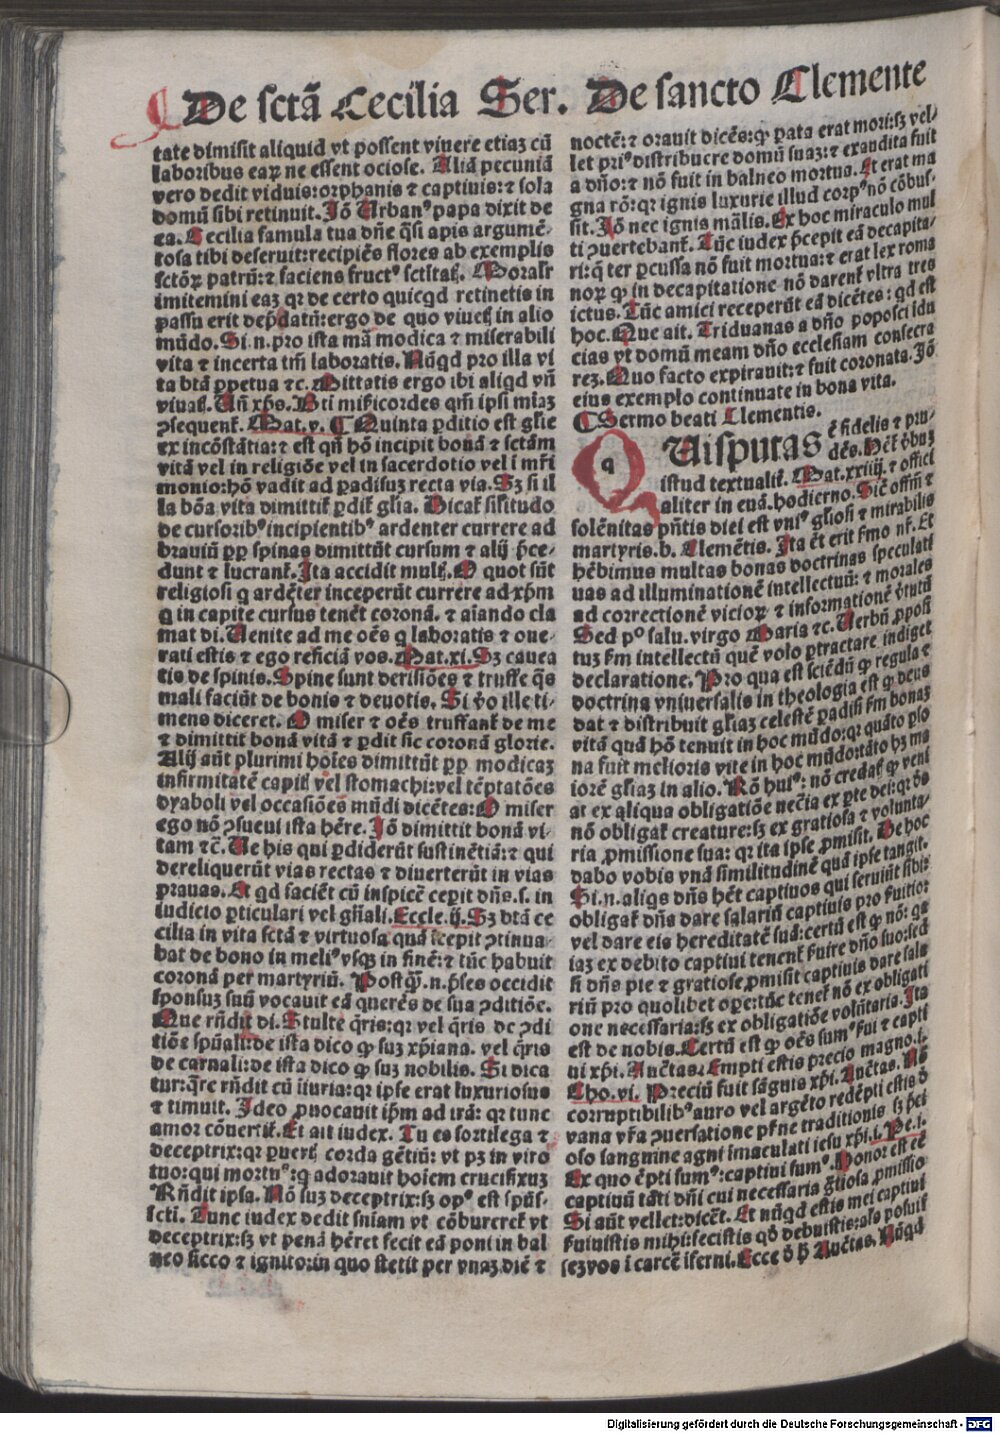 De sctã Cecilia Ser. De sancto Clemente
tate dimisit aliquid vt possent viuere etiaz cũ
laboribus eaꝝ ne essent ociose. Aliã pecuniã
vero dedit viduis: orphanis ⁊ captiuis: ⁊ sola
domũ sibi retinuit. Iõ Urbanꝰ papa dixit de
ea. Cecilia famula tua dñe q̃si apis argumẽ-
tosa tibi deseruit: recipiẽs flores ab exemplis
sctõꝝ patrũ: ⁊ faciens fructꝰ sctitat. Moralr
imitemini eaz qꝛ de certo quicqd retinetis in
passu erit dep̃datũ: ergo de quo viuet in alio
mũdo. Si.n.pro ista mã modica ⁊ miserabili
vita ⁊ incerta tm̃ laboratis. Nũqd pro illa vi
ta btã ꝑpetua ⁊c. Mittatis ergo ibi aliqd vñ
viuat. Uñ xp̃s. Bti misericordes qm̃ ipsi miaz
ↄsequent. Mat.v. ¶ Quinta ꝑditio est glie
ex incõstãtia: ⁊ est qñ hõ incipit bonã ⁊ sctãm
vitã vel in religiõe vel in sacerdotio vel ĩ mr̃i
monio: hõ vadit ad ꝑadisuz recta via. Sꝫ si il
la bõa vita dimittit ꝑdit glia. Dicat silitudo
de cursoribꝰ incipientibꝰ ardenter currere ad
brauiũ ꝓp spinas dimittũt cursum ⁊ alij p̃ce-
dunt ⁊ lucrant. Ita accidit mult. O quot sũt
religiosi q ardẽter inceperũt currere ad xp̃m
q in capite cursus tenẽt coronã. ⁊ aiando cla
mat di. Uenite ad me oẽs q laboratis ⁊ one-
rati estis ⁊ ego reficiã vos. Mat.xi. Sꝫ cauea
tis de spinis. Spine sunt derisiões ⁊ truffe q̃s
mali faciũt de bonis ⁊ deuotis. Si v̊o ille ti-
mens diceret. O miser ⁊ oẽs truffant de me
⁊ dimittit bonã vitã ⁊ ꝑdit sic coronã glorie.
Alij aũt plurimi hoĩes dimittũt ꝓp modicaz
infirmitatẽ capit vel stomachi: vel tẽptatões
dyaboli vel occasiões mũdi dicẽtes: O miser
ego nõ ↄsueui ista hẽre. Iõ dimittit bonã vi-
tam ⁊c̃. Ue his qui ꝑdiderũt sustinẽtiã: ⁊ qui
dereliquerũt vias rectas ⁊ diuerterũt in vias
prauas. Et qd faciẽt cũ inspicẽ ceperit dñs.s. in
iudicio ꝑticulari vel gñali. Eccle.ij. Sꝫ btã ce
cilia in vita sctã ⁊ virtuosa quã ĩcepit ↄtinua-
bat de bono in meliꝰ vsqꝫ in finẽ: ⁊ tũc habuit
coronã per martyriũ. Postq̃.n.p̃ses occidit
sponsuz suũ vocauit eã querẽs de sua ↄditiõe.
Que rñdit di. Stulte q̃ris: qꝛ vel q̃ris de ↄdi
tiõe spũali: de ista dico ꝙ suz xp̃iana. vel q̃ris
de carnali: de ista dico ꝙ suz nobilis. Si dica
tur: q̃re rñdit cũ iiuria: qꝛ ipse erat luxuriosus
⁊ timuit. Ideo ꝓuocauit ip̃m ad irã: qꝛ tunc
amor cõuertit. Et ait iudex. Tu es sortilega ⁊
deceptrix: qꝛ ꝑuert corda gẽtiũ: vt pꝫ in viro
tuo: qui mortuꝰ: q adorauit hoĩem crucifixuz
Rñdit ipsa. Nõ suz deceptrix: sꝫ opꝰ est spũs-
scti. Tunc iudex dedit sniam vt cõburcret vt
deceptrix: sꝫ vt penã hẽret fecit eã poni in bal
neo sicco ⁊ ignito: in quo stetit per vnaz diẽ ⁊
noctẽ: ⁊ orauit dicẽs: ꝙ ꝑata erat mori: sꝫ vel-
let priꝰ distribuere domũ suaz: ⁊ exaudita fuit
a dño: ⁊ nõ fuit in balneo mortua. Et erat ma
gna rõ: qꝛ ignis luxurie illud corpꝰ nõ cõbus-
sit. Iõ nec ignis mãlis. Ex hoc miraculo mul
ti ↄuertebant. Tũc iudex p̃cepit eã decapita-
ri: q̃ ter ꝑcussa nõ fuit mortua: ⁊ erat lex roma
noꝝ ꝙ in decapitatione nõ darent vltra tres
ictus. Tũc amici receperũt eã dicẽtes: qd est
hoc. Que ait. Triduanas a dño poposci idu
cias vt domũ meam dño ecclesiam consecra
reꝫ. Quo facto expirauit: ⁊ fuit coronata. Iõ
eius exemplo continuate in bona vita.
¶ Sermo beati Clementis.
QUisputas ẽ fidelis ⁊ pru-
dẽs. Hẽt v̊buz
istud textualit. Mat.xxiiij. ⁊ offici
aliter in euã. hodierno. Sic̃ offm̃ ⁊
solẽnitas pñtis diei est vniꝰ gliosi ⁊ mirabilis
martyris.b. Clemẽtis. Ita ẽt erit sermo nr̃. Et
hẽbimus multas bonas doctrinas speculati
uas ad illuminationẽ intellectuũ: ⁊ morales
ad correctionẽ vicioꝝ ⁊ informationẽ v̊tutũ
Sed pº salu. virgo Maria ⁊c. Uerbũ ꝓposi
tuz sm intellectũ quẽ volo ꝑtractare indiget
declaratione. Pro qua est sciẽdũ ꝙ regula ⁊
doctrina vniuersalis in theologia est ꝙ deus
dat ⁊ distribuit gliaz celestẽ ꝑadisi sm bonaz
vitã quã hõ tenuit in hoc mũdo: qꝛ quãto ꝑso
na fuit melioris vite in hoc mũdo: tãto hꝫ ma
iorẽ gliaz in alio. Rõ huiꝰ: nõ credat ꝙ veni
at ex aliqua obligatiõe nec̃ia ex ꝑte dei: qꝛ dẽs
nõ obligat creature: sꝫ ex gratiosa ⁊ volunta-
ria ꝓmissione sua: qꝛ ita ipse ꝓmisit. De hoc
dabo vobis vnã similitudinẽ quã ipse tangit.
Si.n.aliqs dñs hẽt captiuos qui seruiũt sibi:
obligat dñs dare salariũ captiuis pro suitio:
vel dare eis hereditatẽ suã: certũ est ꝙ nõ: qꝛ
iaz ex debito captiui tenent suire dño suo: sed
si dñs pie ⁊ gratiose ꝓmisit captiuis dare sala
riũ pro quolibet oꝑe: tũc tenet nõ ex obligati
one necessaria: sꝫ ex obligatiõe volũtaria. Ita
est de nobis. Certũ est ꝙ oẽs sumꝰ sui ⁊ capti
ui xp̃i. Auc̃tas. Empti estis precio magno.i.
Cho.vi. Preciũ fuit sãguis xp̃i. Auc̃tas. Nõ
corruptibilibꝰ auro vel argẽto redẽpti estis ð
vana vr̃a ↄuersatione pr̃ne traditionis sꝫ p̃ci
oso sanguine agni imaculati iesu xp̃i.i. Pe.i.
Ex quo ẽpti sumꝰ: captiui sumꝰ. Honor est eẽ
captiuũ tãti dñi cui necessaria g̃tiosa ꝓmissio
Si aũt vellet: dicẽt. Et nũqd estis mei captiui
suiuistis mihi: fecistis qð debuistis: als posuit
sez vos ĩ carcẽ ĩferni. Ecce ð ħ Auc̃tas. Nũqd
Digitalisierung gefördert durch die Deutsche Forschungsgemeinschaft - DFG